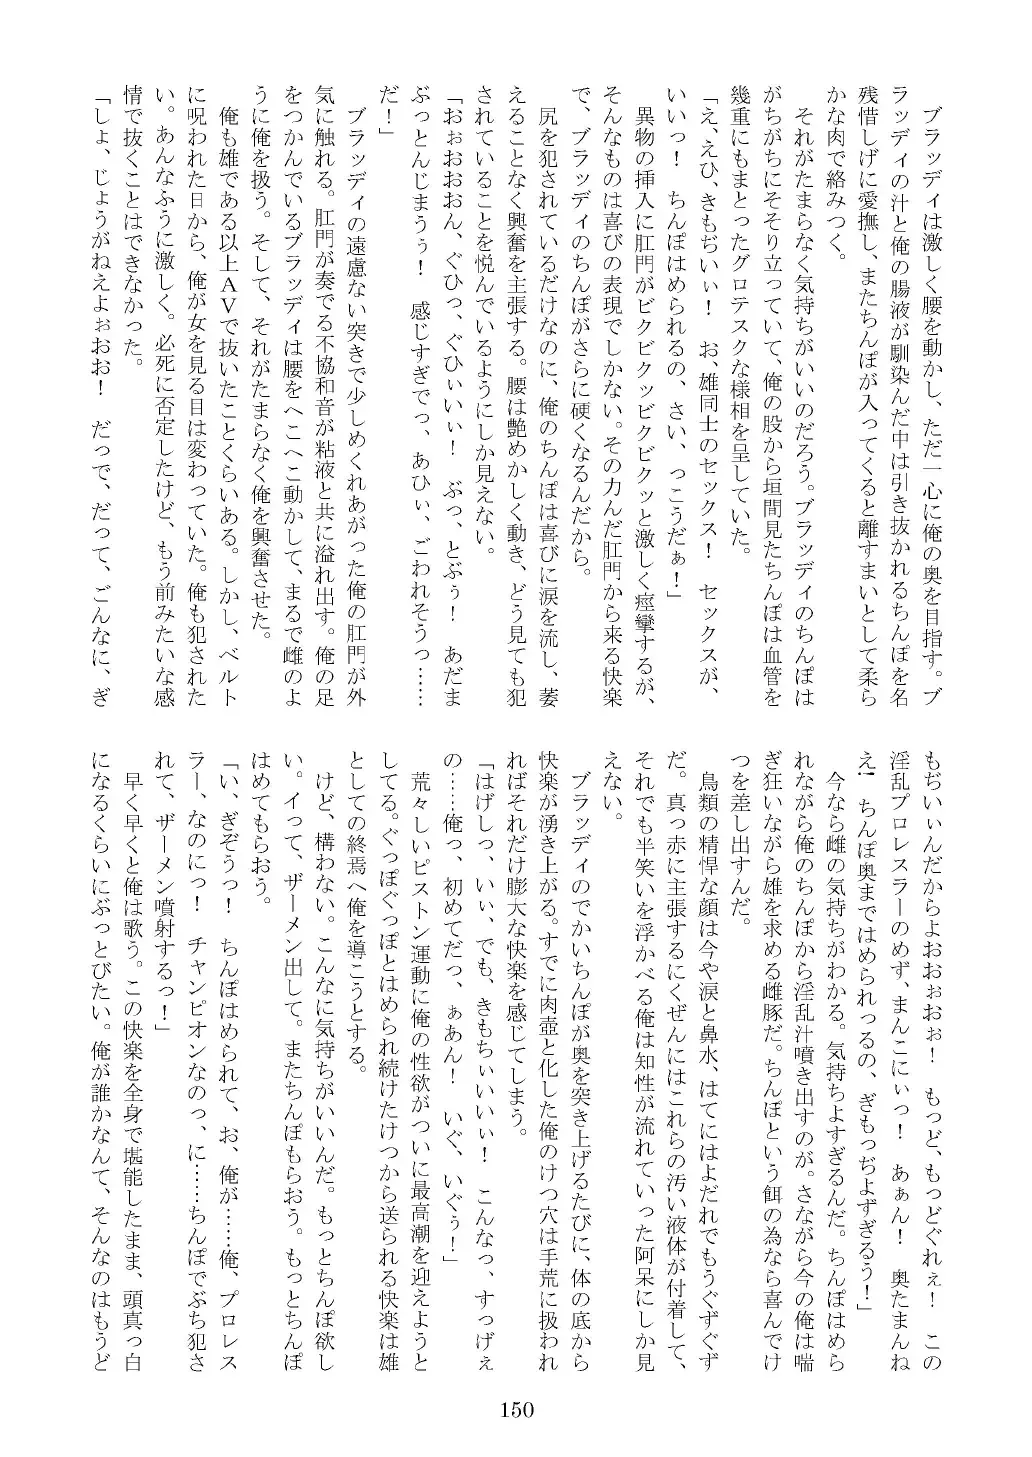 ブラッディは激しく腰を動かし、ただ一心に俺の奥を目指す。ブ
ラッディの汁と俺の腸液が馴染んだ中は引き抜かれるちんぽを名
残惜しげに愛撫し、またちんぽが入ってくると離すまいとして柔ら
かな肉で絡みつく。
それがたまらなく気持ちがいいのだろう。ブラッディのちんぽは
がちがちにそそり立っていて、俺の股から垣間見たちんぽは血管を
幾重にもまとったグロテスクな様相を呈していた。
「え、えひ、きもぢいぃ！　お、雄同士のセックス！　セックスが、
いいっ！　ちんぽはめられるの、さい、っこうだぁ！」
異物の挿入に肛門がビクビクッビクビクッと激しく痙攣するが、
そんなものは喜びの表現でしかない。その力んだ肛門から来る快楽
で、ブラッディのちんぽがさらに硬くなるんだから。
尻を犯されているだけなのに、俺のちんぽは喜びに涙を流し、萎
えることなく興奮を主張する。腰は艶めかしく動き、どう見ても犯
されていることを悦んでいるようにしか見えない。
「おぉおおおん、ぐひっ、ぐひぃいぃ！　ぶっ、とぶぅ！　あだま
ぶっとんじまうぅ！　感じすぎでっ、あひぃ、ごわれそうっ……
だ！」
ブラッディの遠慮ない突きで少しめくれあがった俺の肛門が外
気に触れる。肛門が奏でる不協和音が粘液と共に溢れ出す。俺の足
をつかんでいるブラッディは腰をへこへこ動かして、まるで雌のよ
うに俺を扱う。そして、それがたまらなく俺を興奮させた。
俺も雄である以上ＡＶで抜いたことくらいある。しかし、ベルト
に呪われた日から、俺が女を見る目は変わっていた。俺も犯された
い。あんなふうに激しく。必死に否定したけど、もう前みたいな感
情で抜くことはできなかった。
「しょ、じょうがねえよぉおお！　だっで、だって、ごんなに、ぎ
もぢいぃんだからよおおぉおぉ！　もっど、もっどぐれぇ！　この
淫乱プロレスラーのめず、まんこにぃっ！　あぁん！　奥たまんね
え！　ちんぽ奥まではめられっるの、ぎもっぢよずぎるう！」
今なら雌の気持ちがわかる。気持ちよすぎるんだ。ちんぽはめら
れながら俺のちんぽから淫乱汁噴き出すのが。さながら今の俺は喘
ぎ狂いながら雄を求める雌豚だ。ちんぽという餌の為なら喜んでけ
つを差し出すんだ。
鳥類の精悍な顔は今や涙と鼻水、はてにはよだれでもうぐずぐず
だ。真っ赤に主張するにくぜんにはこれらの汚い液体が付着して、
それでも半笑いを浮かべる俺は知性が流れていった阿呆にしか見
えない。
ブラッディのでかいちんぽが奥を突き上げるたびに、体の底から
快楽が湧き上がる。すでに肉壺と化した俺のけつ穴は手荒に扱われ
ればそれだけ膨大な快楽を感じてしまう。
「はげしっ、いぃ、でも、きもちぃいいぃ！　こんなっ、すっげぇ
の……俺っ、初めてだっ、ぁあん！　いぐ、いぐぅ！」
荒々しいピストン運動に俺の性欲がついに最高潮を迎えようと
してる。ぐっぽぐっぽとはめられ続けたけつから送られる快楽は雄
としての終焉へ俺を導こうとする。
けど、構わない。こんなに気持ちがいいんだ。もっとちんぽ欲し
い。イって、ザーメン出して。またちんぽもらおう。もっとちんぽ
はめてもらおう。
「い、ぎぞうっ！　ちんぽはめられて、お、俺が……俺、プロレス
ラー、なのにっ！　チャンピオンなのっ、に……ちんぽでぶち犯さ
れて、ザーメン噴射するっ！」
早く早くと俺は歌う。この快楽を全身で堪能したまま、頭真っ白
になるくらいにぶっとびたい。俺が誰かなんて、そんなのはもうど
150